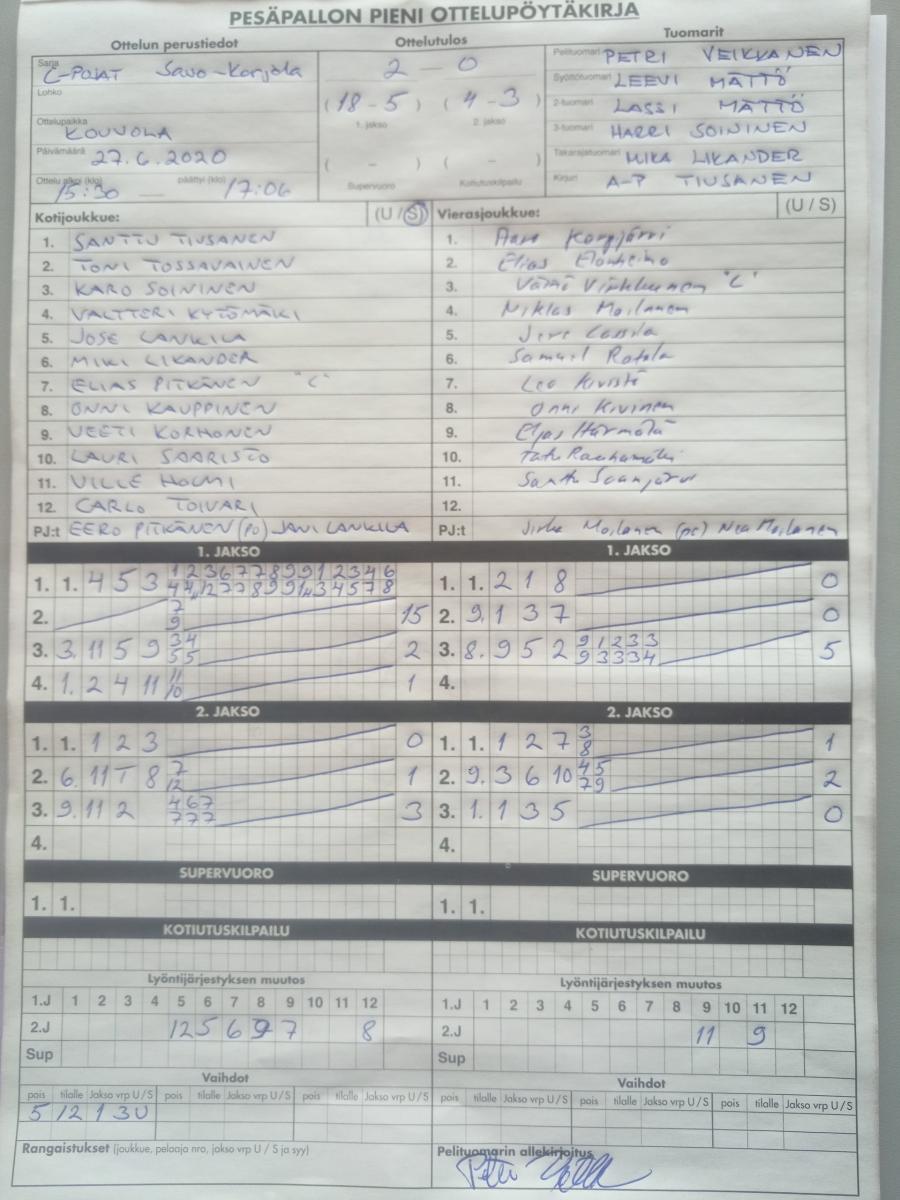 PESÄPALLON PIENI OTTELUPÖYTÄKIRJA
Ottelun perustiedot
Sarja C-POJAT Savo-Karjala
Lohko
Ottelupaikka KOUVOLA
Päivämäärä 27.6.2020
Ottelu alkoi (klo) 15:30 päättyi (klo) 17:06
Ottelutulos
2 - 0
(18 - 5) (4 - 3)
1. jakso 2. jakso
( - ) ( - )
Supervuoro Kotiutuskilpailu
Tuomarit
Pelituomari PETRI VEIKKANEN
Syöttötuomari LEEVI MÄTTÖ
2-tuomari LASSI MÄTTÖ
3-tuomari HARRI SOININEN
Takarajatuomari MIKA LIKANDER
Kirjuri A-P TIUSANEN
Kotijoukkue: (U / S)
1. SANTTU TIUSANEN
2. TONI TOSSAVAINEN
3. KARO SOININEN
4. VALTTERI KYTÖMÄKI
5. JOSE LANKILA
6. MIKI LIKANDER
7. ELIAS PITKÄNEN "C"
8. ONNI KAUPPINEN
9. VEETI KORHONEN
10. LAURI SAARISTO
11. VILLE HOLMI
12. CARLO TOIVARI
PJ:t EERO PITKÄNEN (PO) JANI LANKILA
Vierasjoukkue: (U / S)
1. Aaro Korpjärvi
2. Elias Elonheimo
3. Väinö Virkkunen "C"
4. Niklas Moilanen
5. Jere Lassila
6. Samuel Rotola
7. Leo Kivistö
8. Onni Kivinen
9. Eljas Härmälä
10. Tatu Rauhamäki
11. Santtu
12.
PJ:t Moilanen (pe) Nea Moilanen
1. JAKSO
1. 1. 4 5 3 1 2 3 6 7 7 8 9 9 1 2 3 4 6
2. 7 9 15
3. 3. 11 5 9 34 55 2
4. 1. 2 4 11 11 10 1
1. JAKSO
1. 1. 2 1 8 0
2. 9. 1 3 7 0
3. 8. 9 5 2 9 1 2 3 3
9 3 3 3 4 5
4.
2. JAKSO
1. 1. 1 2 3 0
2. 6. 11 T 8 7 12 1
3. 9. 11 2 467 777 3
4.
2. JAKSO
1. 1. 1 2 7 3 8 1
2. 9. 3 6 10 45 79 2
3. 1. 1 3 5 0
4.
SUPERVUORO
1. 1.
SUPERVUORO
1. 1.
KOTIUTUSKILPAILU
KOTIUTUSKILPAILU
Lyöntijärjestyksen muutos
1.J 1 2 3 4 5 6 7 8 9 10 11 12
2.J 12 5 6 9 7 8
Sup
Lyöntijärjestyksen muutos
1.J 1 2 3 4 5 6 7 8 9 10 11 12
2.J 11 9
Sup
Vaihdot
pois tilalle Jakso vrp U / S pois tilalle Jakso vrp U / S pois tilalle Jakso vrp U / S
5 12 1 3U
Vaihdot
pois tilalle Jakso vrp U / S pois tilalle Jakso vrp U / S pois tilalle Jakso vrp U / S
Rangaistukset (joukkue, pelaaja nro, jakso vrp U / S ja syy)
Pelituomarin allekirjoitus